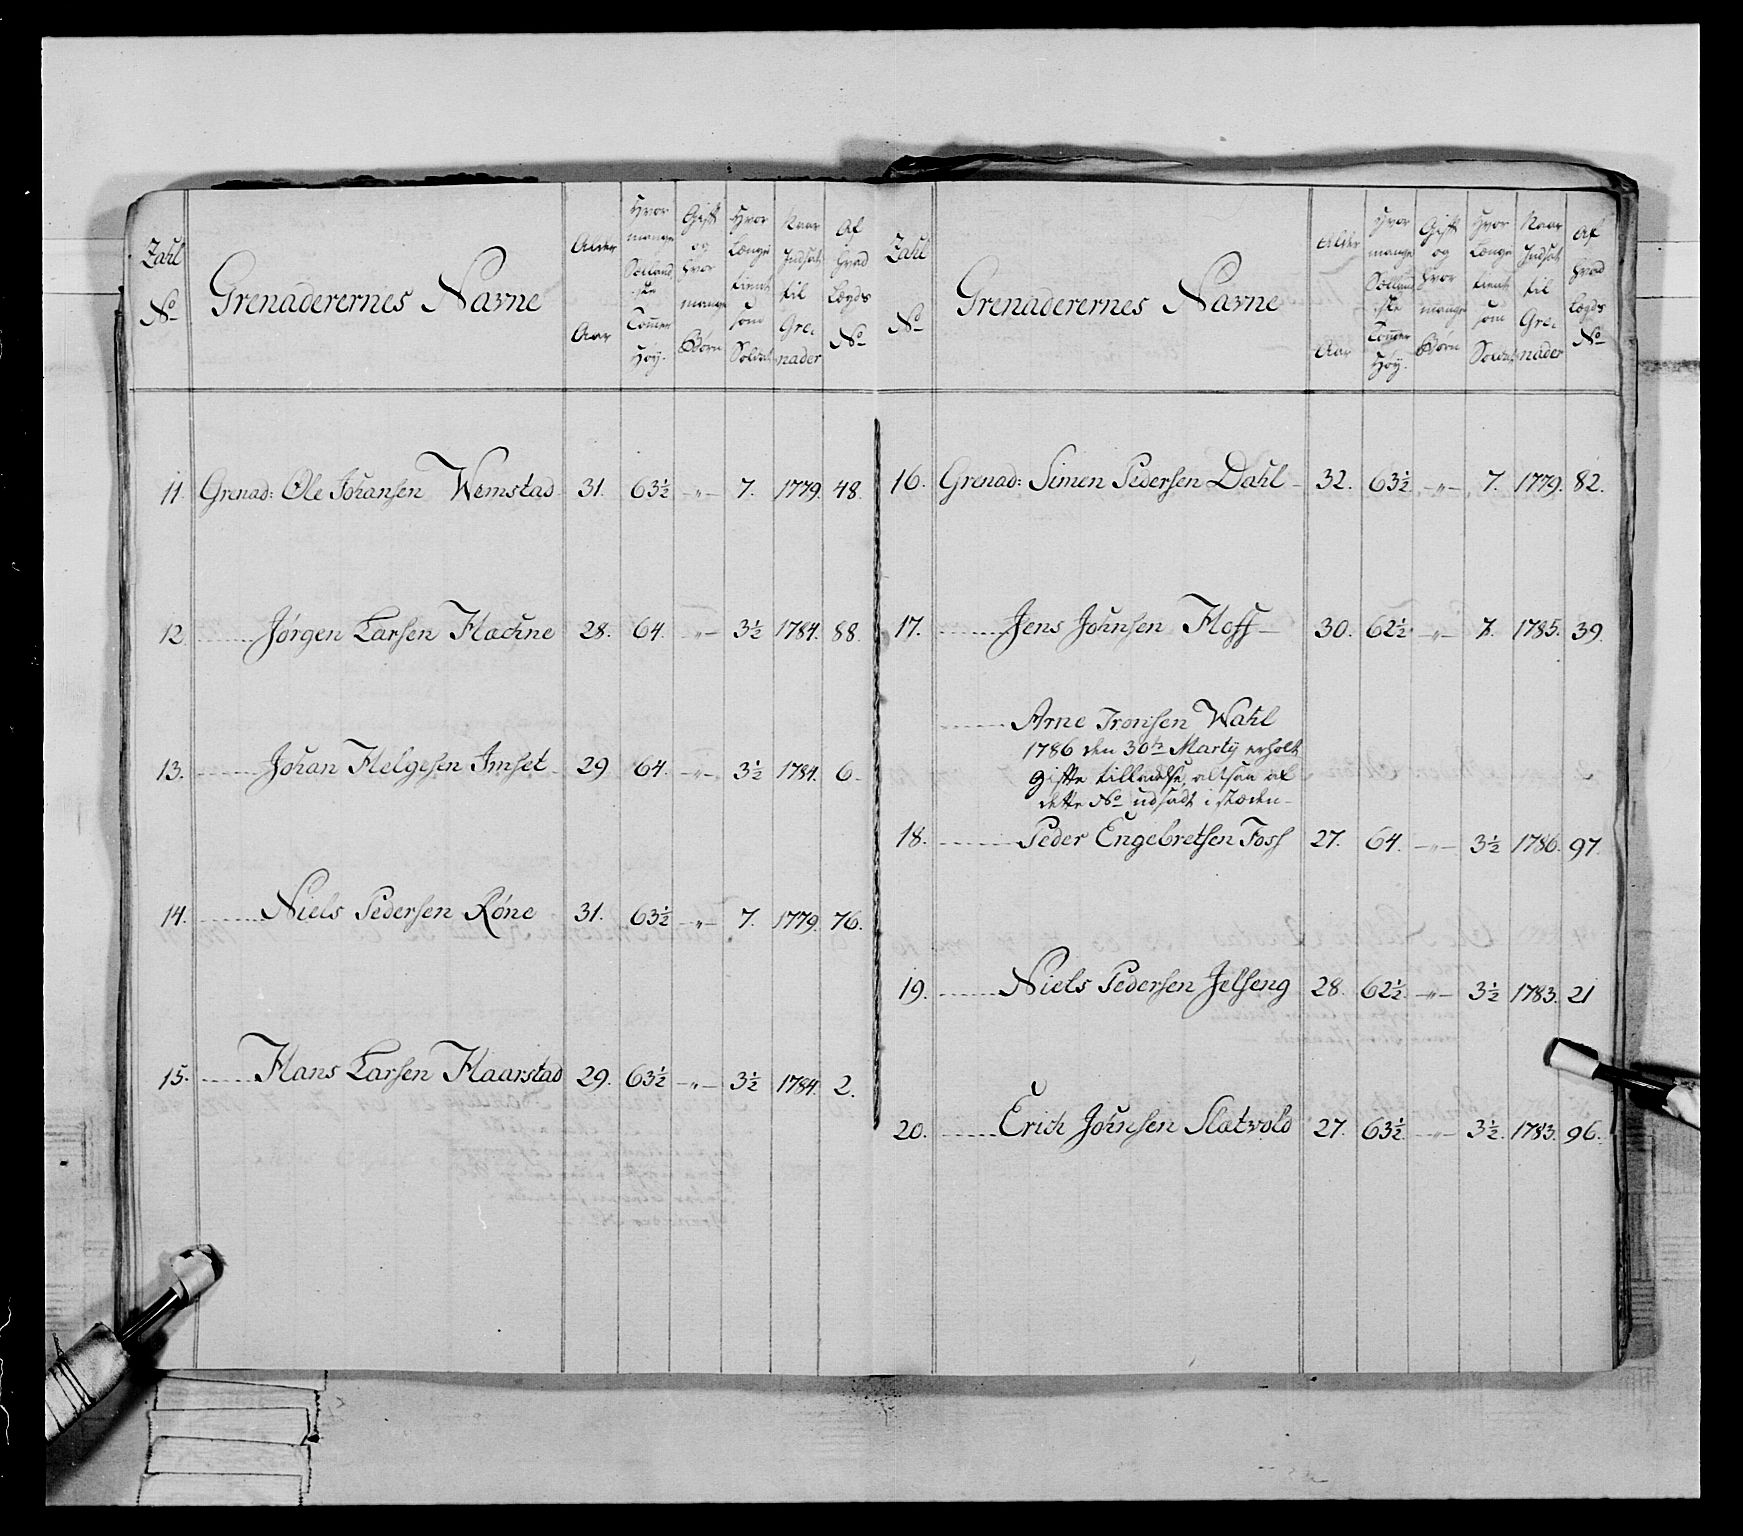 Zahl No
Grenaderernes Navne
Alder Aar
Hvor mange Sælland:ske Tomer Høy.
Gift og Hvor mange Børn
Hvor Længe tient som Soldat
Naar Indsat til Grenader
Af Hvad Lægds No
11. Grenad: Ole Johansen Wemstad 31. 63½ -"- 7. 1779. 48.
12. Jørgen Larsen Hachne 28. 64. -"- 3½ 1784. 88.
13. Johan Helgesen Imset 29 64. -"- 3½ 1784. 6.
14. Niels Pedersen Røne 31. 63½ -"- 7. 1779. 76.
15. Hans Larsen Haarstad 29. 63½ -"- 3½ 1784. 2.
Zahl No
Grenaderernes Navne
Alder Aar
Hvor mange Sælland:ske Tomer Høy.
Gift og Hvor mange Børn
Hvor Længe tient som Soldat
Naar Indsat til Grenader
Af Hvad Lægds No
16. Grenad: Simen Pedersen Dahl 32. 63½ -"- 7. 1779. 82.
17. Jens Johnsen Hoff 30. 62½ -"- 7. 1785. 39.
Arne Tronsen Wahl
1786 den 30te Marty erholt
gifte tilladelse, altsaa af
dette No udsadt i stæden
18. Peder Engebretsen Foss 27. 64. -"- 3½ 1786. 97.
19. Niels Pedersen Jelseng 28. 62½ -"- 3½ 1783. 21
20. Erich Johnsen Slætvold 27. 63½ -"- 3½ 1783. 96.